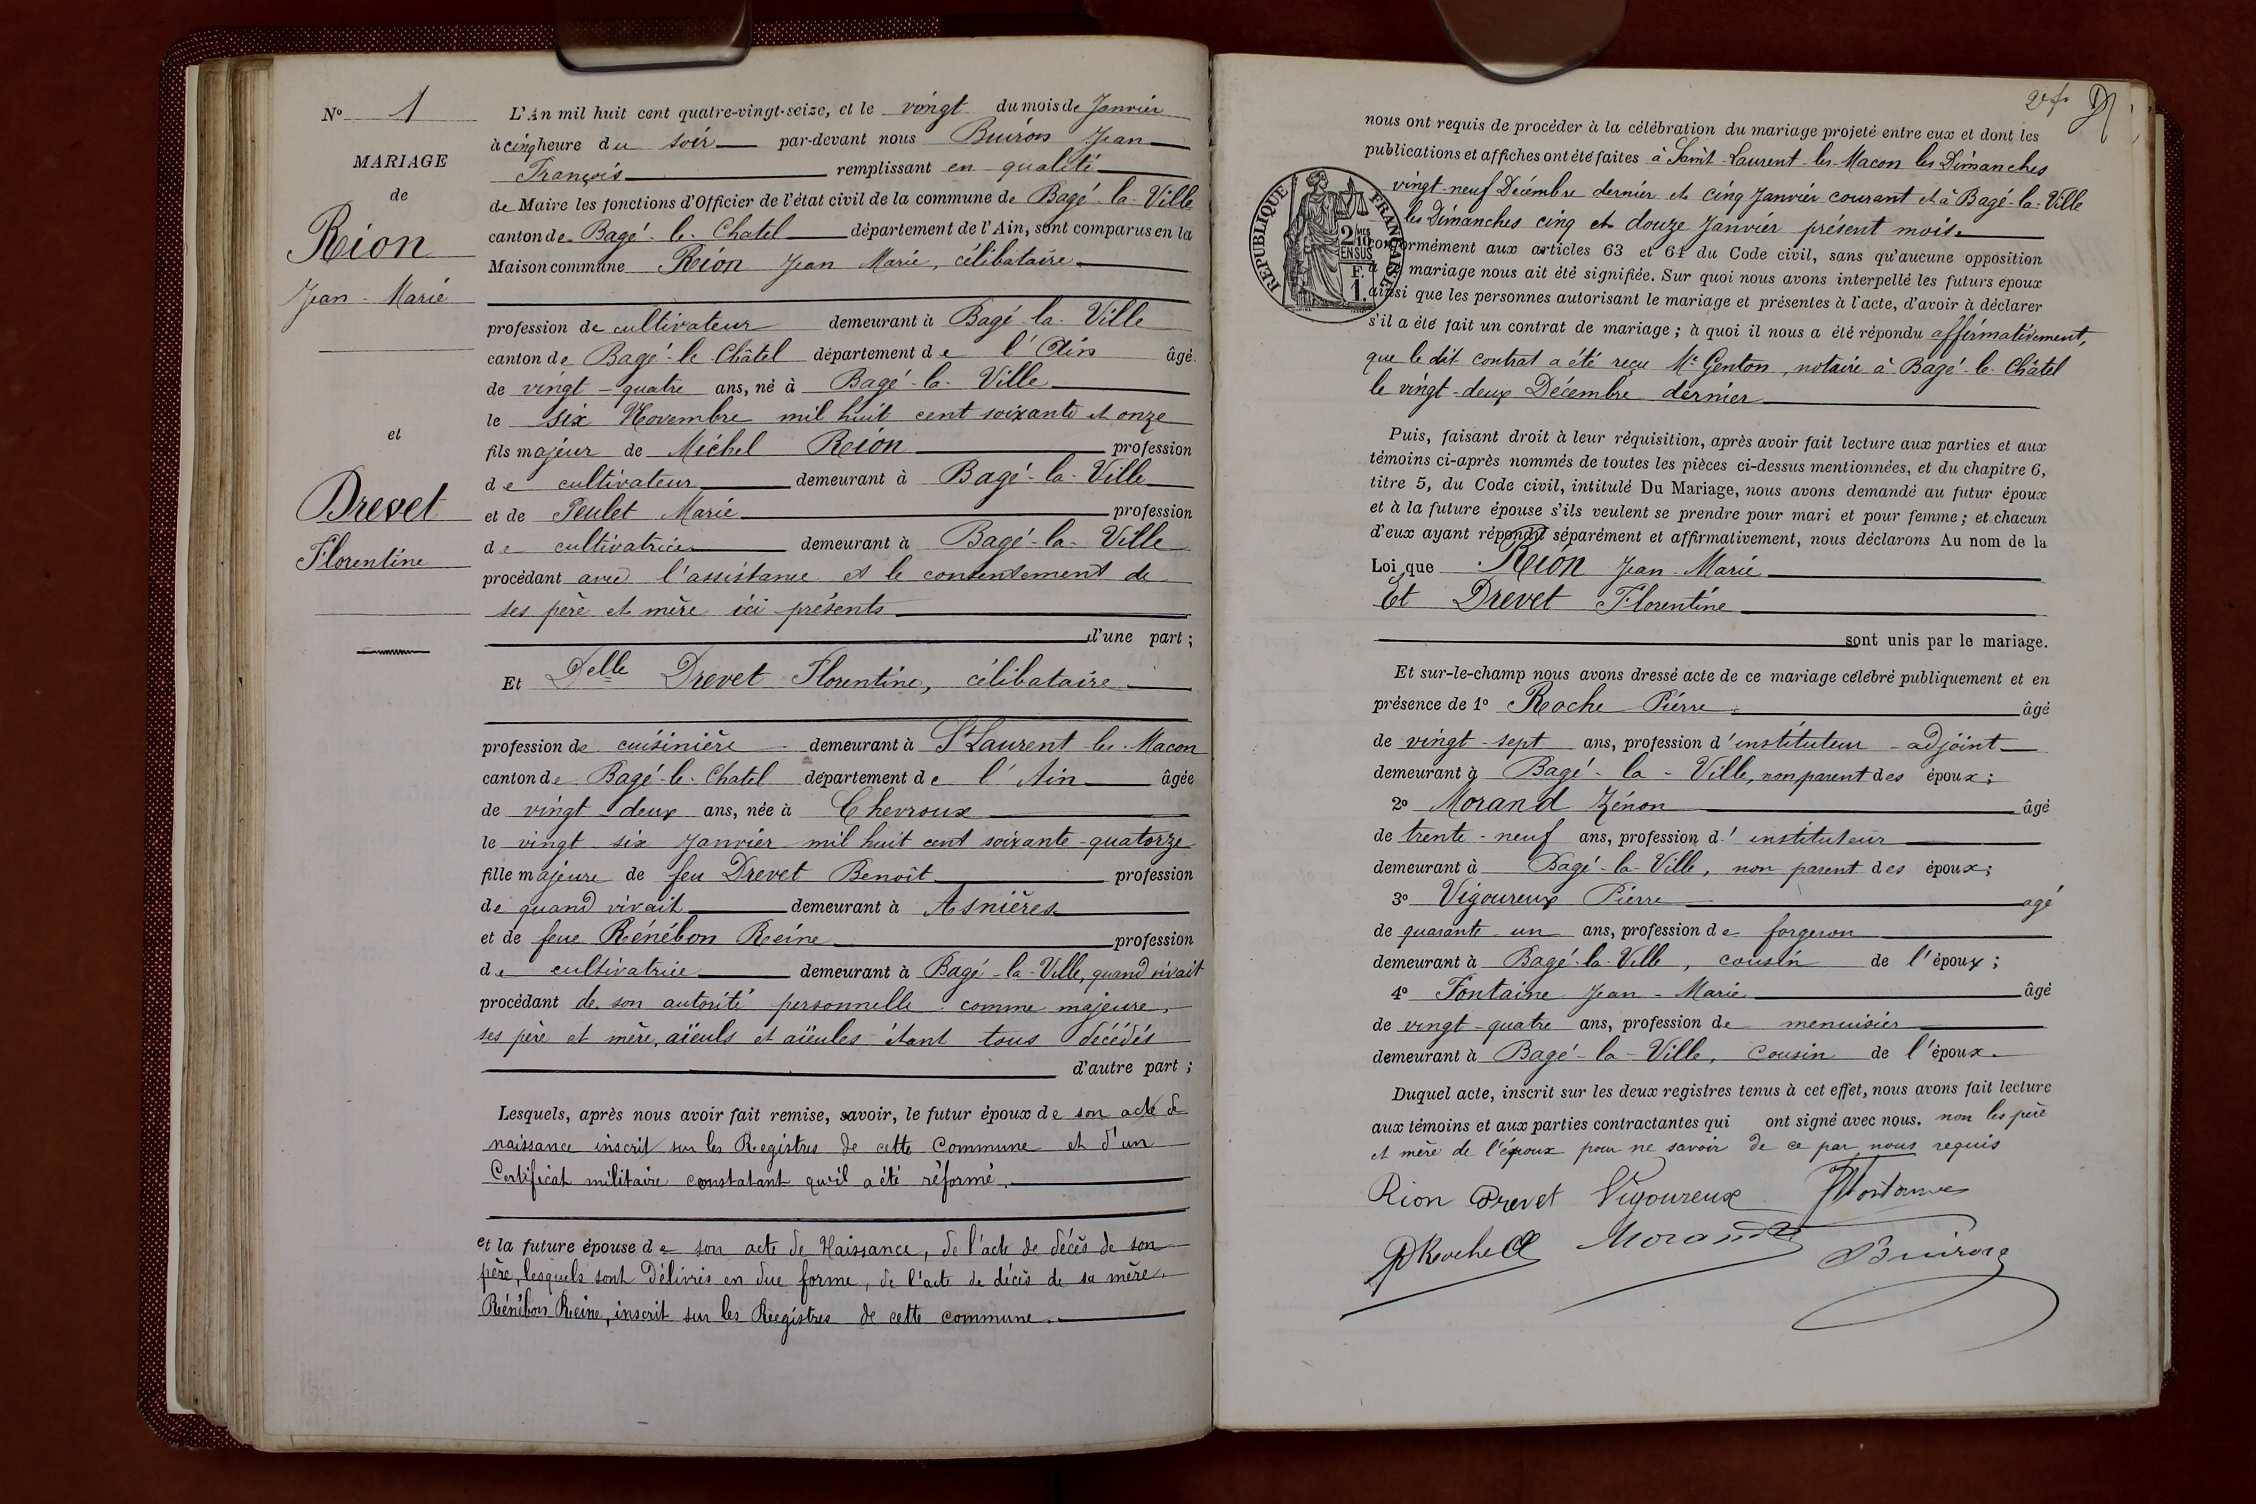 N° 1
MARIAGE
de
Rion
Jean-Marie
et
Drevet
Florentine
L'An mil huit cent quatre-vingt-seize, et le vingt du mois de Janvier
à cinq heure du soir par-devant nous Buiron Jean
François remplissant en qualité
de Maire les fonctions d'Officier de l'état civil de la commune de Bagé-la-Ville
canton de Bagé-le-Chatel département de l'Ain, sont comparus en la
Maison commune Rion Jean Marie, célibataire
profession de cultivateur demeurant à Bagé-la-Ville
canton de Bagé-le-Châtel département de l'Ain âgé
de vingt-quatre ans, né à Bagé-la-Ville
le six Novembre mil huit cent soixante et onze
fils majeur de Michel Rion profession
de cultivateur demeurant à Bagé-la-Ville
et de Teulet Marie profession
de cultivatrice demeurant à Bagé-la-Ville
procédant avec l'assistance et le consentement de
ses père et mère ici présents
d'une part;
Et Delle Drevet Florentine, célibataire
profession de cuisinière demeurant à St Laurent-les-Macon
canton de Bagé-le-Chatel département de l'Ain âgée
de vingt deux ans, née à Chevroux
le vingt-six Janvier mil huit cent soixante-quatorze
fille majeure de feu Drevet Benoît profession
de quand vivait demeurant à Asnières
et de feue Rénébon Reine profession
de cultivatrice demeurant à Bagé-la-Ville, quand vivait
procédant de son autorité personnelle comme majeure,
ses père et mère, aïeuls et aïeules étant tous décédés
d'autre part;
Lesquels, après nous avoir fait remise, savoir, le futur époux de son acte de
naissance inscrit sur les Registres de cette Commune et d'un
Certificat militaire constatant qu'il a été réformé.
et la future épouse de son acte de Naissance, de l'acte de décès de son
père, lesquels sont Délivrés en due forme, de l'acte de décès de sa mère
Rénébon Reine, inscrit sur les Registres de cette commune.
nous ont requis de procéder à la célébration du mariage projeté entre eux et dont les
publications et affiches ont été faites à Saint-Laurent-les-Macon les Dimanches
vingt-neuf Décembre dernier et cinq Janvier courant et à Bagé-la-Ville
les Dimanches cinq et douze Janvier présent mois.
RÉPUBLIQUE FRANÇAISE
2 10MES
EN SUS
F.
1.
conformément aux articles 63 et 64 du Code civil, sans qu'aucune opposition
mariage nous ait été signifiée. Sur quoi nous avons interpellé les futurs époux
ainsi que les personnes autorisant le mariage et présentes à l'acte, d'avoir à déclarer
s'il a été fait un contrat de mariage; à quoi il nous a été répondu affirmativement,
que le dit contrat a été reçu Me Genton, notaire à Bagé-le-Châtel
le vingt-deux Décembre dernier
Puis, faisant droit à leur réquisition, après avoir fait lecture aux parties et aux
témoins ci-après nommés de toutes les pièces ci-dessus mentionnées, et du chapitre 6,
titre 5, du Code civil, intitulé Du Mariage, nous avons demandé au futur époux
et à la future épouse s'ils veulent se prendre pour mari et pour femme; et chacun
d'eux ayant répondu séparément et affirmativement, nous déclarons Au nom de la
Loi que Rion Jean-Marie
Et Drevet Florentine
sont unis par le mariage.
Et sur-le-champ nous avons dressé acte de ce mariage célébré publiquement et en
présence de 1° Roche Pierre âgé
de vingt-sept ans, profession d'instituteur-adjoint
demeurant à Bagé-la-Ville, non parent des époux;
2° Morand Zénon âgé
de trente-neuf ans, profession d'instituteur
demeurant à Bagé-la-Ville, non parent des époux;
3° Vigoureux Pierre agé
de quarante-un ans, profession de forgeron
demeurant à Bagé-la-Ville, cousin de l'époux;
4° Fontaine Jean-Marie âgé
de vingt-quatre ans, profession de menuisier
demeurant à Bagé-la-Ville, cousin de l'époux.
Duquel acte, inscrit sur les deux registres tenus à cet effet, nous avons fait lecture
aux témoins et aux parties contractantes qui ont signé avec nous. non les père
et mère de l'époux pour ne savoir de ce par nous requis
Rion Drevet Vigoureux Fontaine
P Roche Morand Buiron